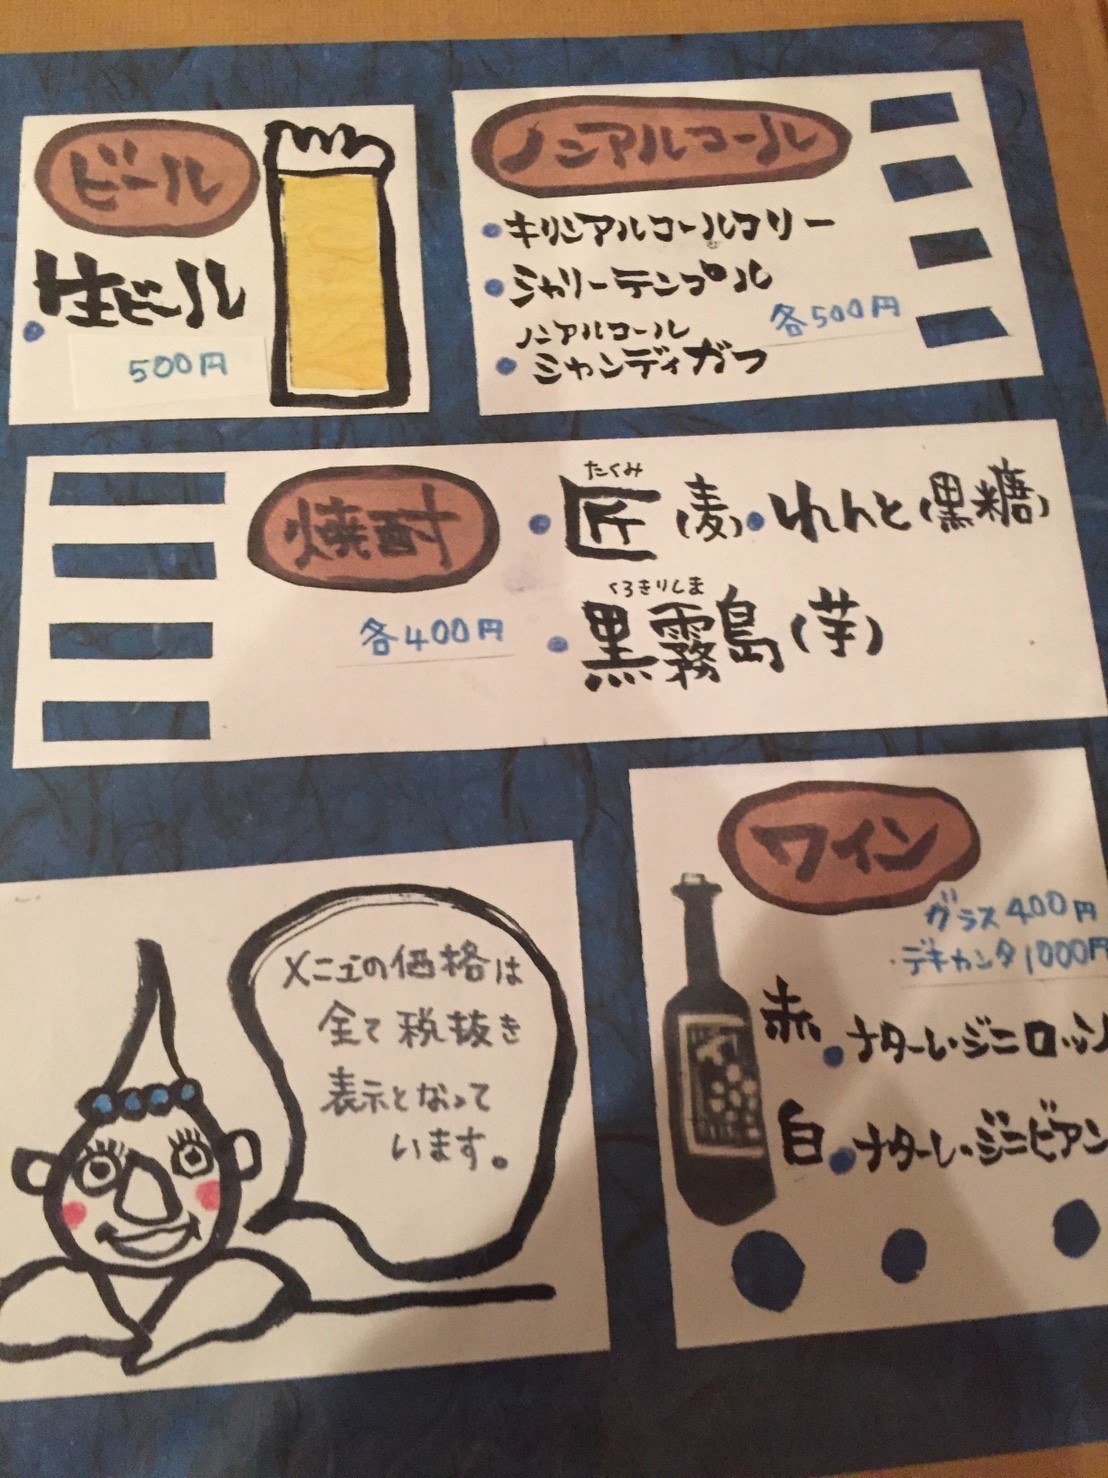 ビール
生ビール
500円
ノンアルコール
キリンアルコールフリー
シャリーテンプル
ノンアルコール
シャンディガフ
各500円
焼酎
各400円
たくみ
匠(麦)・れんと(黒糖)
くろきりしま
黒霧島(芋)
ワイン
グラス400円
デキカンタ1000円
赤・ナターレ・ジニロッソ
白・ナターレ・ジニビアン
メニューの価格は
全て税抜き
表示となって
います。